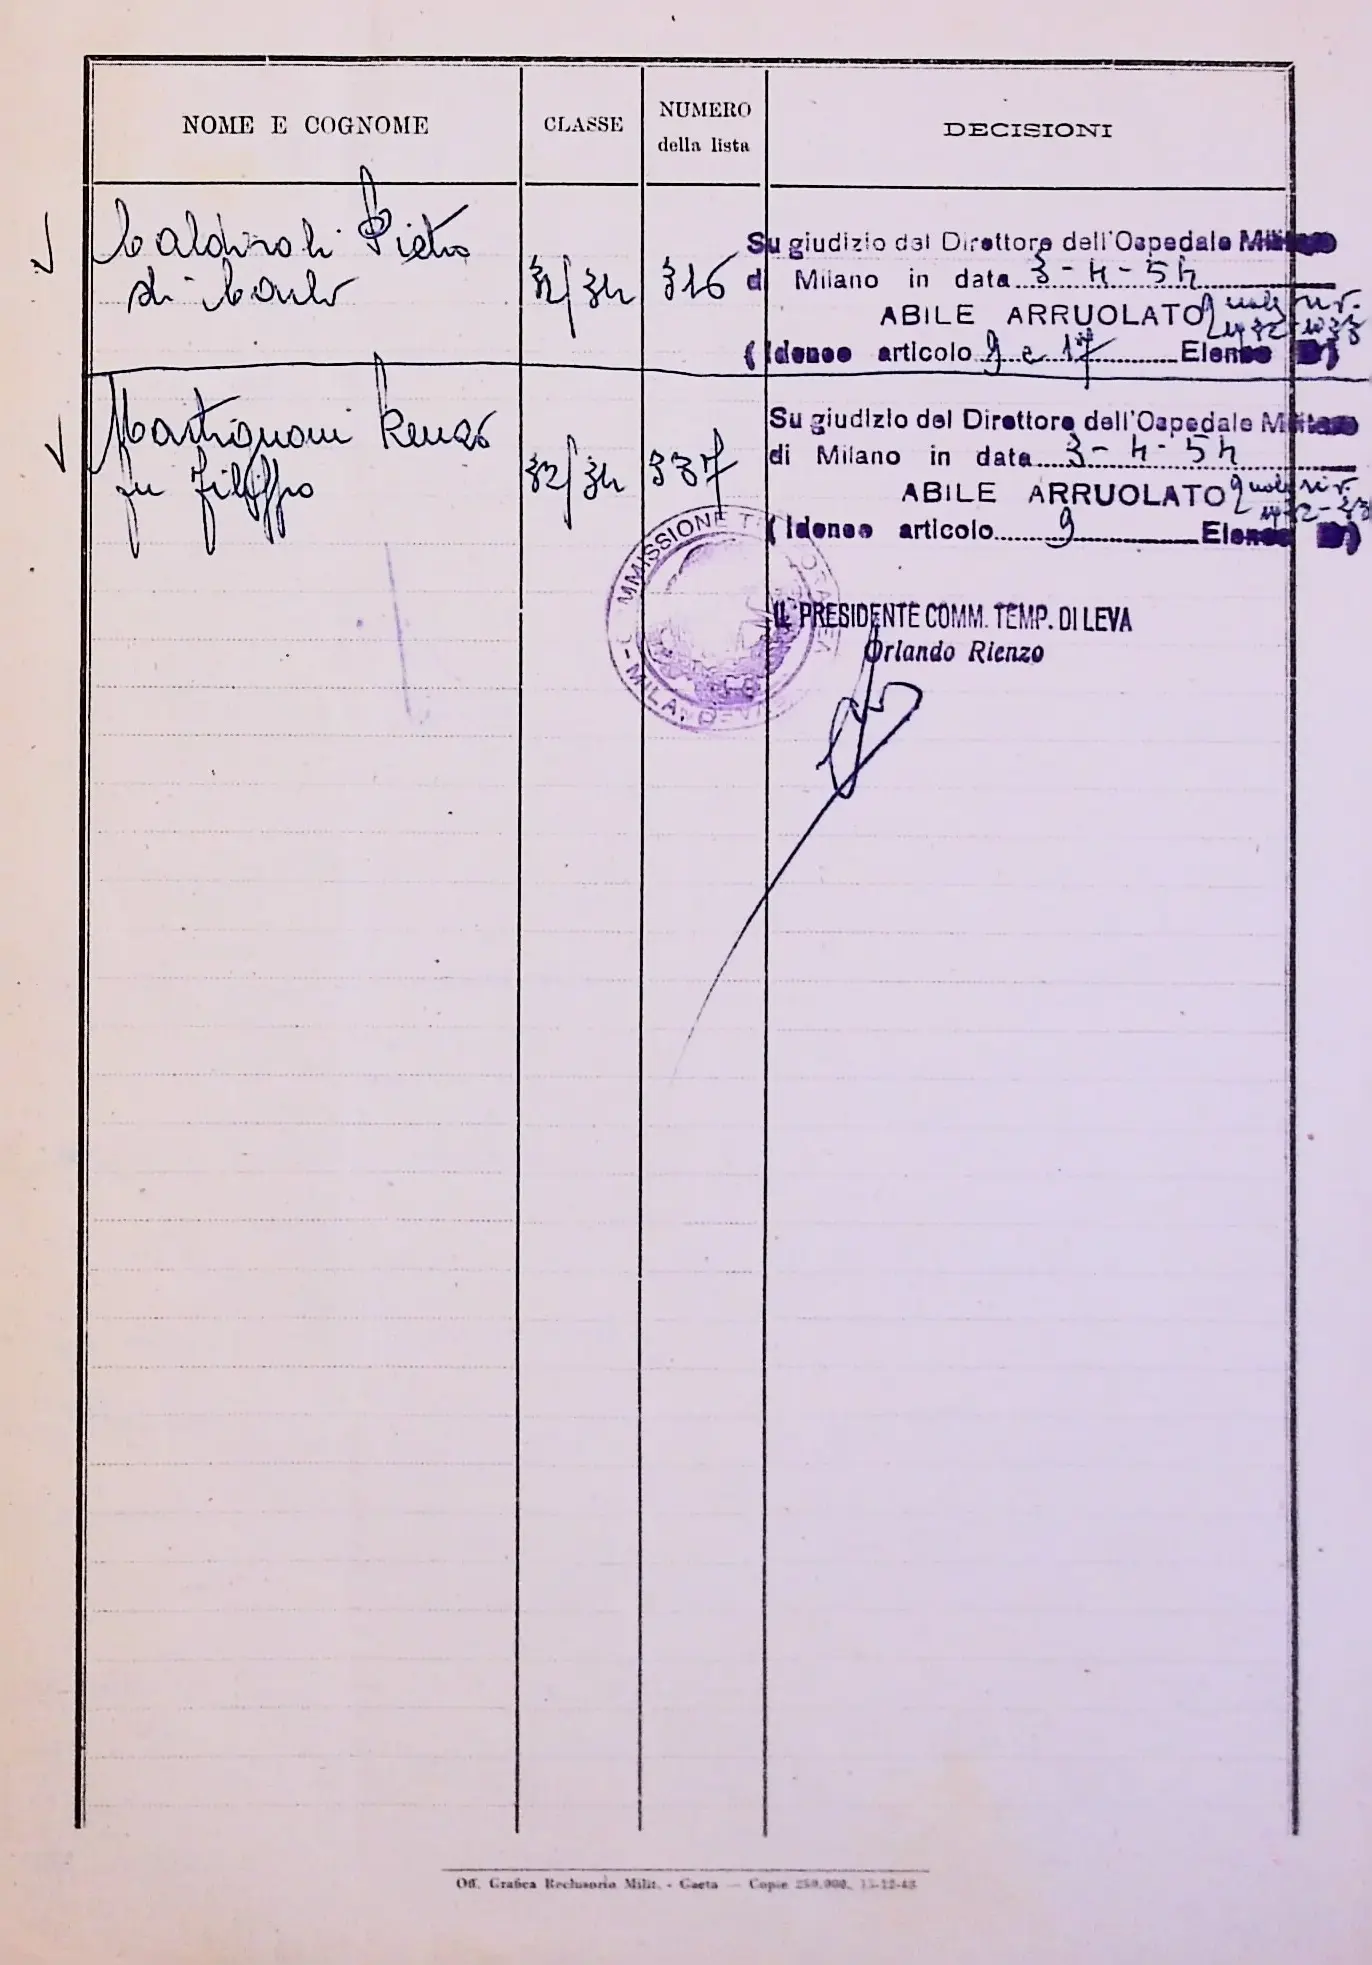 NOME E COGNOME
CLASSE
NUMERO
della lista
DECISIONI
Caldiroli Pietro
di Carlo
32/34
316
Su giudizio del Direttore dell'Ospedale Militare
di Milano in data 3-4-54
ABILE ARRUOLATO quale riv.
1932-1933
(Idoneo articolo 9 e 17 Elenco B)
Martignoni Renzo
fu Filippo
32/34
337
Su giudizio del Direttore dell'Ospedale Militare
di Milano in data 3-4-54
ABILE ARRUOLATO quale riv.
1932-33
(Idoneo articolo 9 Elenco B)
IL PRESIDENTE COMM. TEMP. DI LEVA
Orlando Rienzo
Off. Grafica Reclusorio Milit. - Gaeta — Copie 250.000,